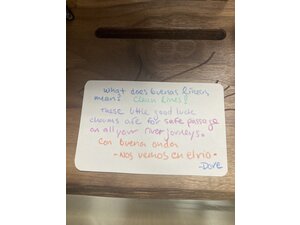 What does buenas lineas
mean? Clean Lines?
These little good luck
charms are for safe passage
on all your river journeys.
Con buena onda
- Nos vemos en el rio -
- Dove